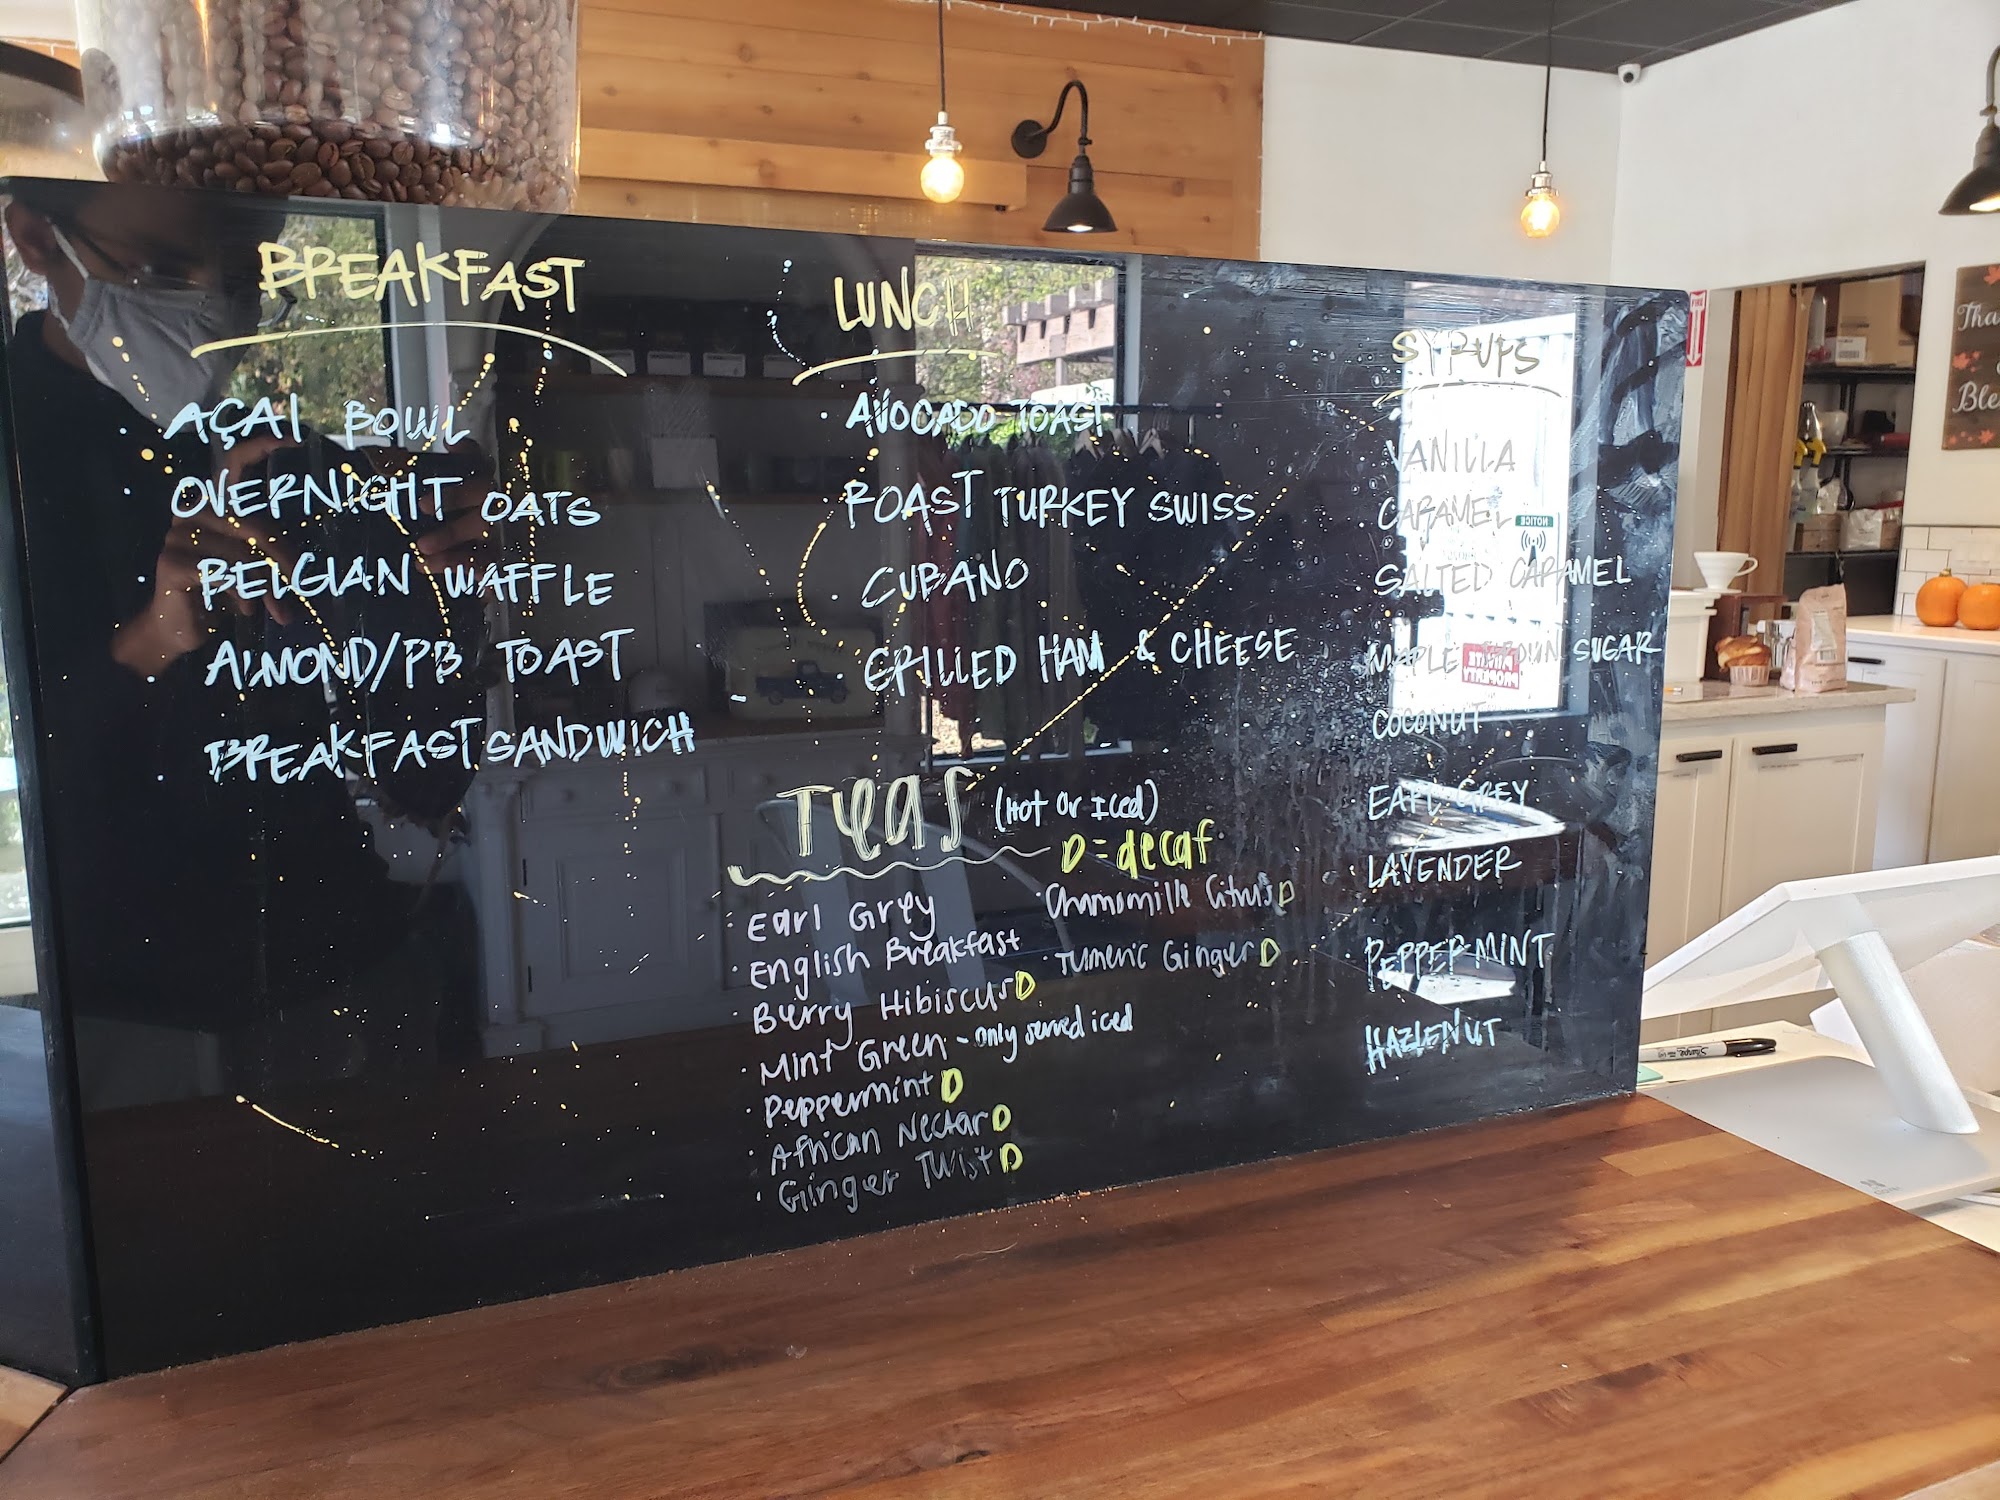 BREAKFAST
AÇAI BOWL
OVERNIGHT OATS
BELGIAN WAFFLE
ALMOND/PB TOAST
BREAKFAST SANDWICH
LUNCH
AVOCADO TOAST
ROAST TURKEY SWISS
CUBANO
GRILLED HAM & CHEESE
Teas (Hot Or Iced)
D = decaf
Earl Grey
English Breakfast
Berry Hibiscus D
Mint Green - only served iced
Peppermint D
African Nectar D
Ginger Twist D
Chamomille Citrus D
Tumeric Ginger D
SYRUPS
VANILLA
CARAMEL
SALTED CARAMEL
MAPLE BROWN SUGAR
COCONUT
EARL GREY
LAVENDER
PEPPERMINT
HAZLENUT
NOTICE
PRIVATE
PROPERTY
FIRE
Sharpie